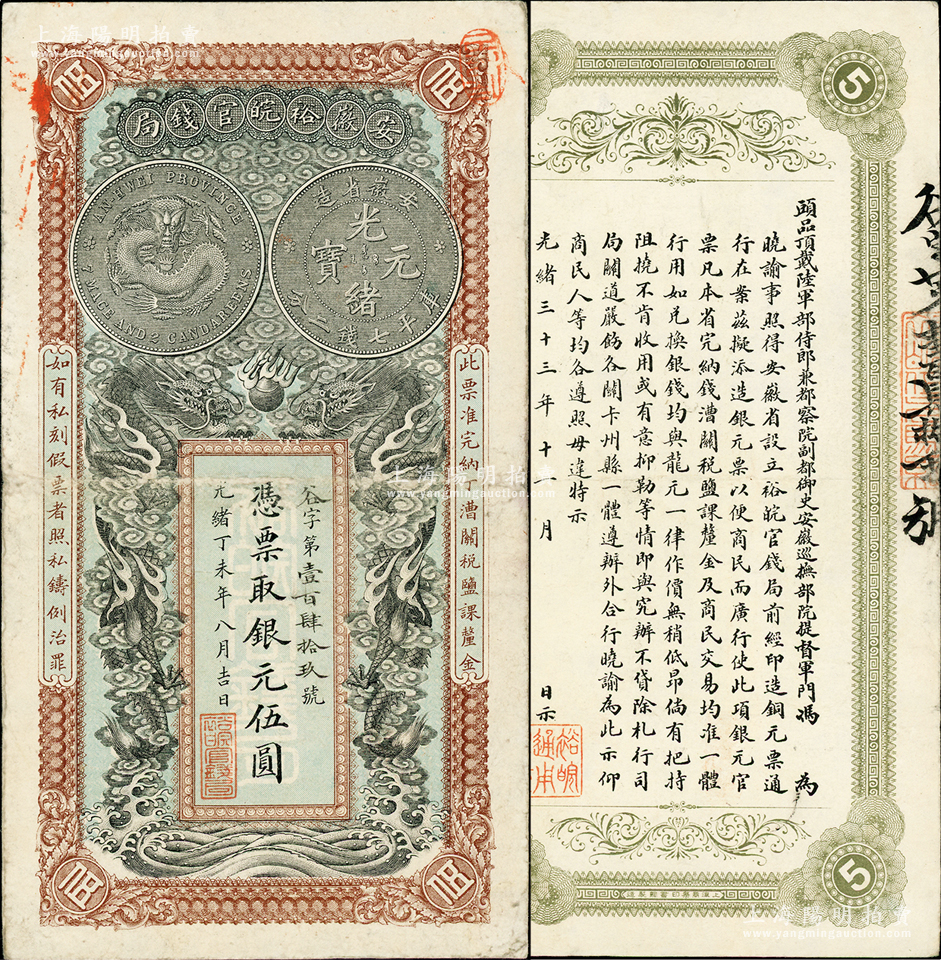 上海陽明拍賣
伍
伍
安徽裕皖官錢局
AN-HWEI PROVINCE
7 MACE AND 2 CANDAREENS
安徽省造
光緒元寶
庫平七錢二分
此票准完納丁漕關稅鹽課釐金
如有私刻假票者照私鑄例治罪
谷字第壹百肆拾玖號
憑票取銀元伍圓
光緒丁未年八月吉日
上海陽明拍賣
www.yangmingauction.com
伍
伍
5
頭品頂戴陸軍部侍郎兼都察院副都御史安徽巡撫部院提督軍門馮 為
曉諭事照得安徽省設立裕皖官錢局前經印造銅元票通
行在案茲擬添造銀元票以便商民而廣行使此項銀元官
票凡本省完納錢漕關稅鹽課釐金及商民交易均准一體
行用如兌換銀錢均與龍元一律作價無稍低昂倘有把持
阻撓不肯收用或有意抑勒等情即與究辦不貸除札行司
局關道嚴飭各關卡州縣一體遵辦外合行曉諭為此示仰
商民人等均各遵照毋違特示
光緒三十三年十月 日示
裕皖
通用
5
上海陽明拍賣
www.yangmingauction.com